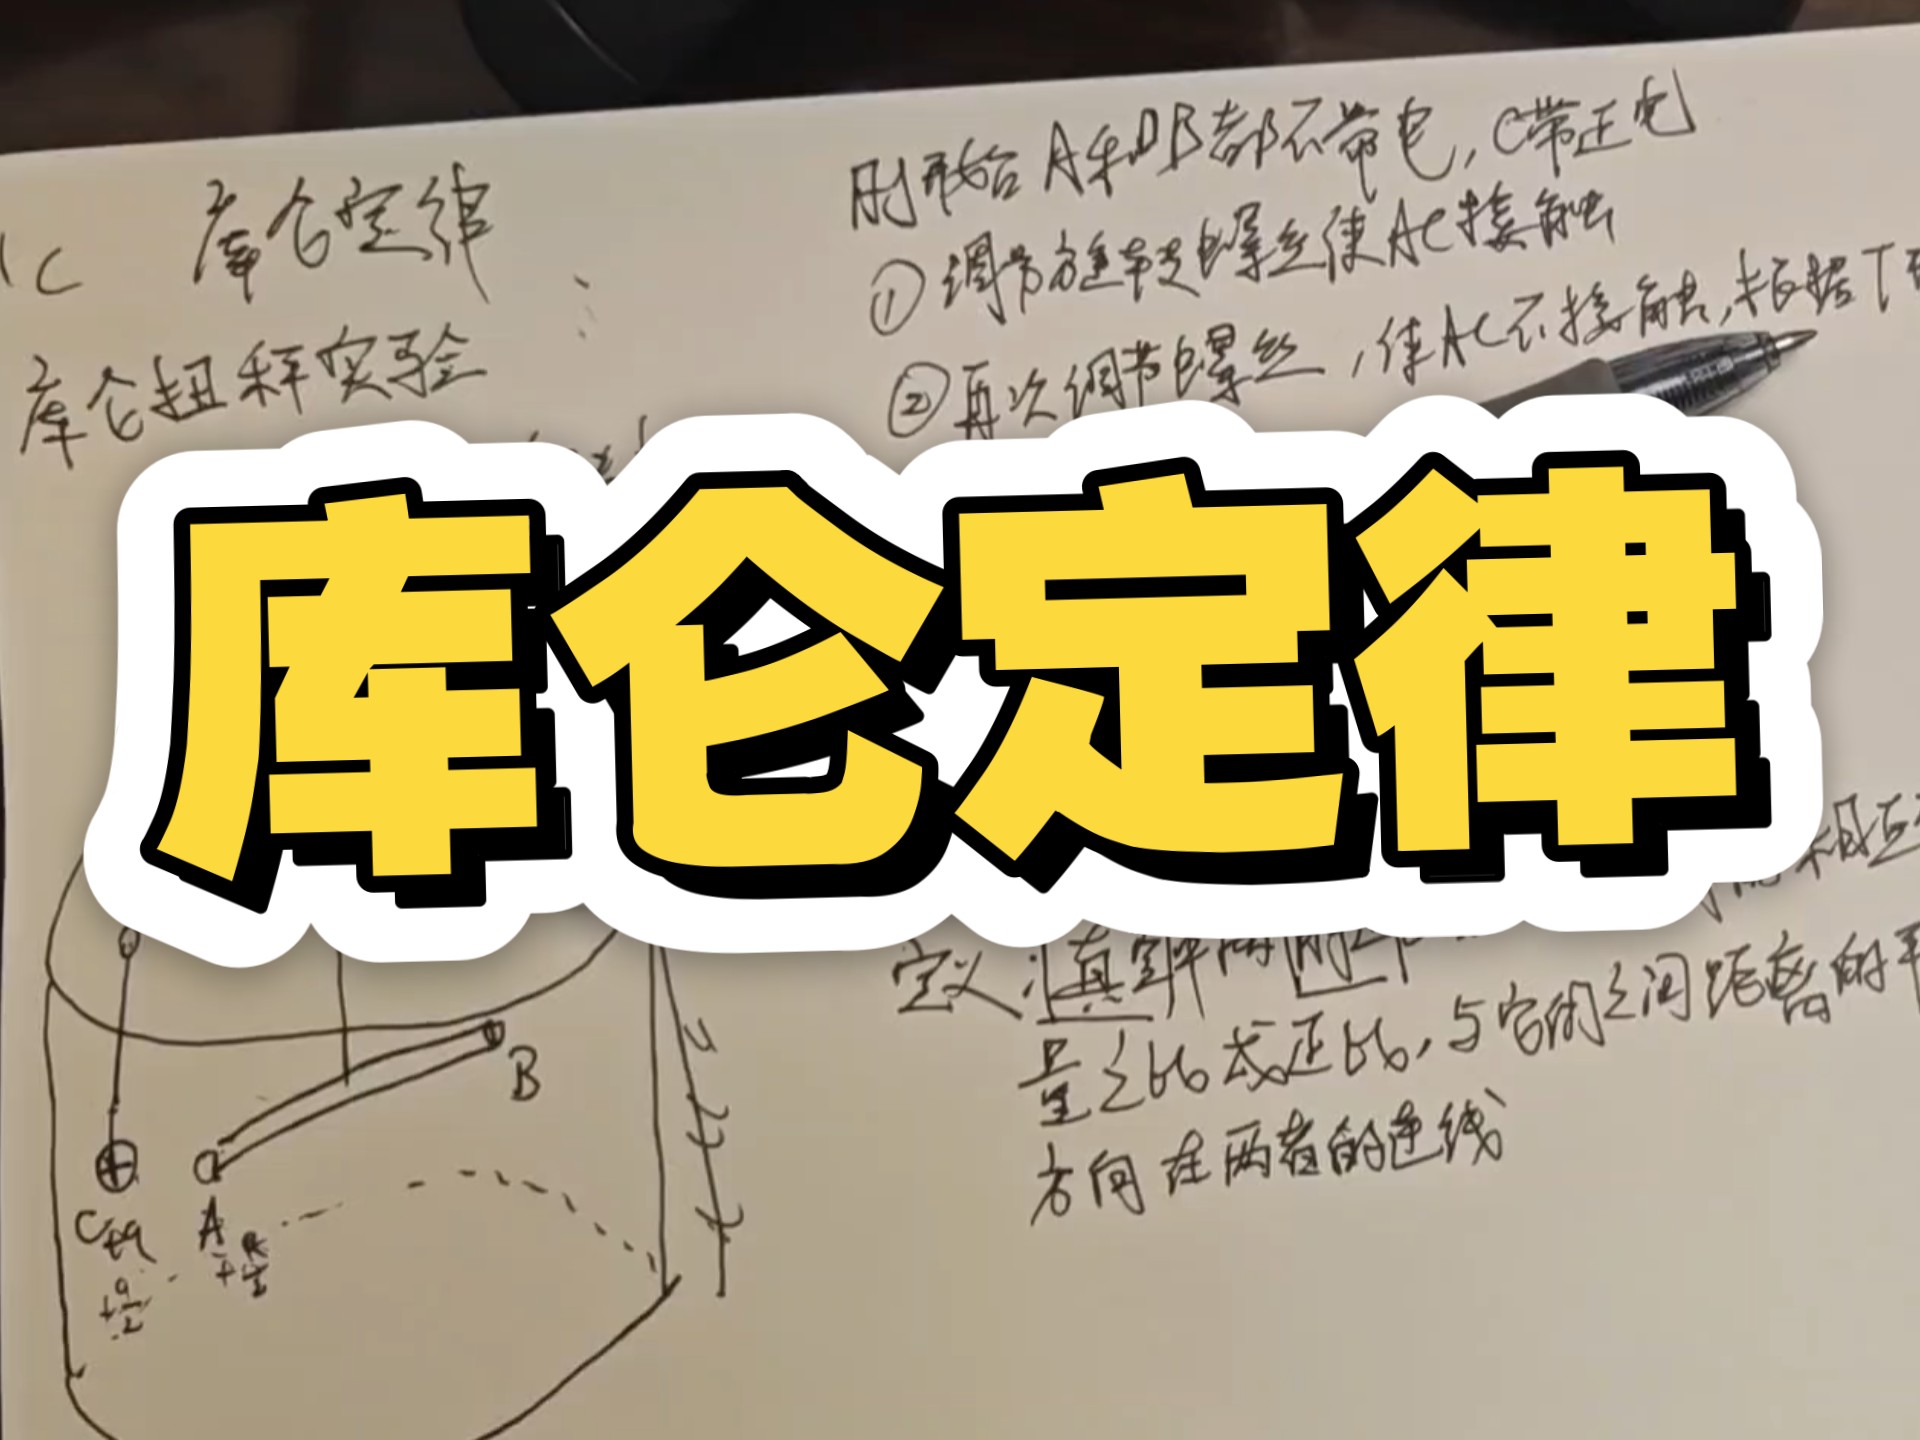 1C
库仑定律
库仑扭秤实验
刚开始A和B都不带电，C带正电
①调节旋转螺丝使AC接触
②再次调节螺丝，使AC不接触，根据T
库仑定律
相互
定义：真空中两
量之比成正比，与它们之间距离的平
方向在两者的连线
B
C
A
+q
+q/2
+q/2